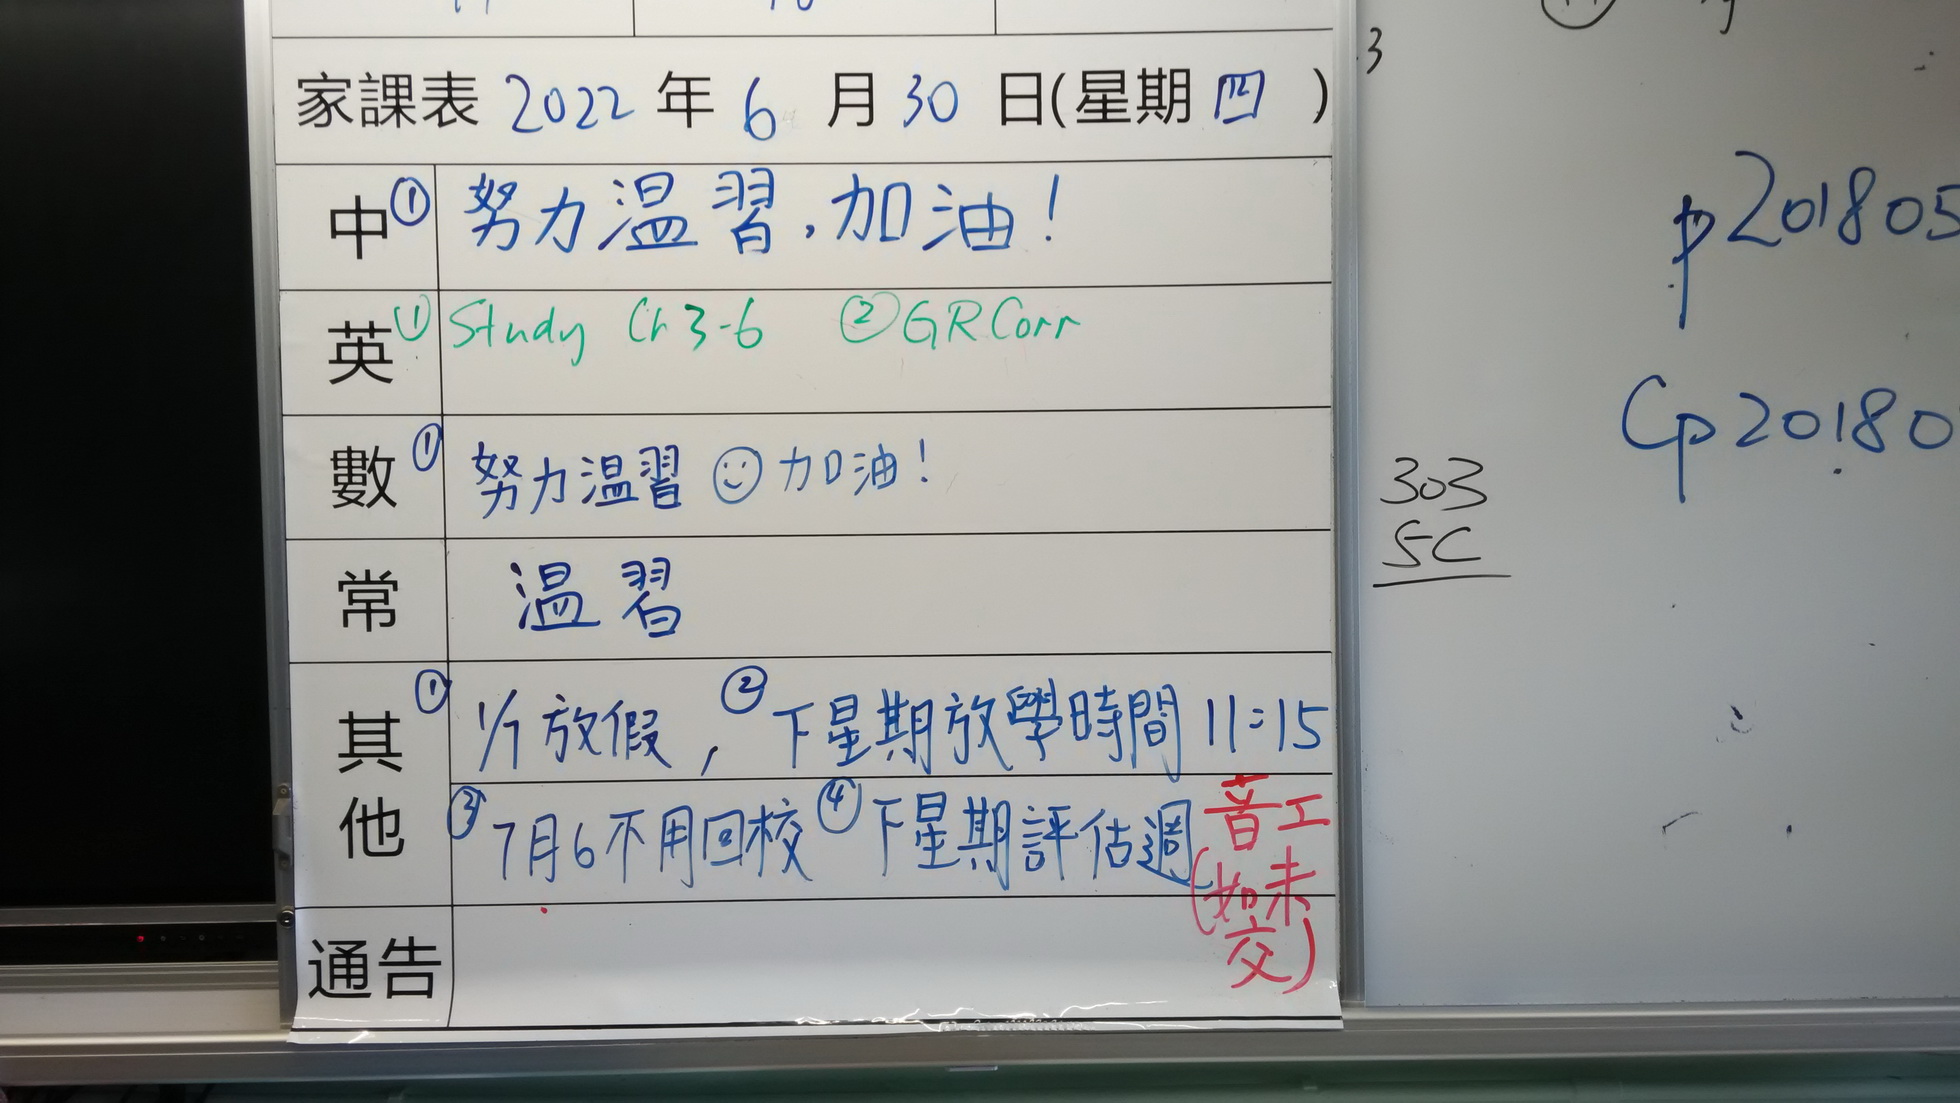 家課表 2022 年 6 月 30 日(星期 四 )
中 ① 努力温習,加油!
英 ① Study Ch 3-6 ② GR Corr
數 ① 努力温習 加油!
常 温習
其他 ① 1/7 放假, ② 下星期放學時間 11:15
③ 7月6不用回校 ④ 下星期評估週
音工
(如未
交)
通告
3
p201805
Cp20180
303
5C